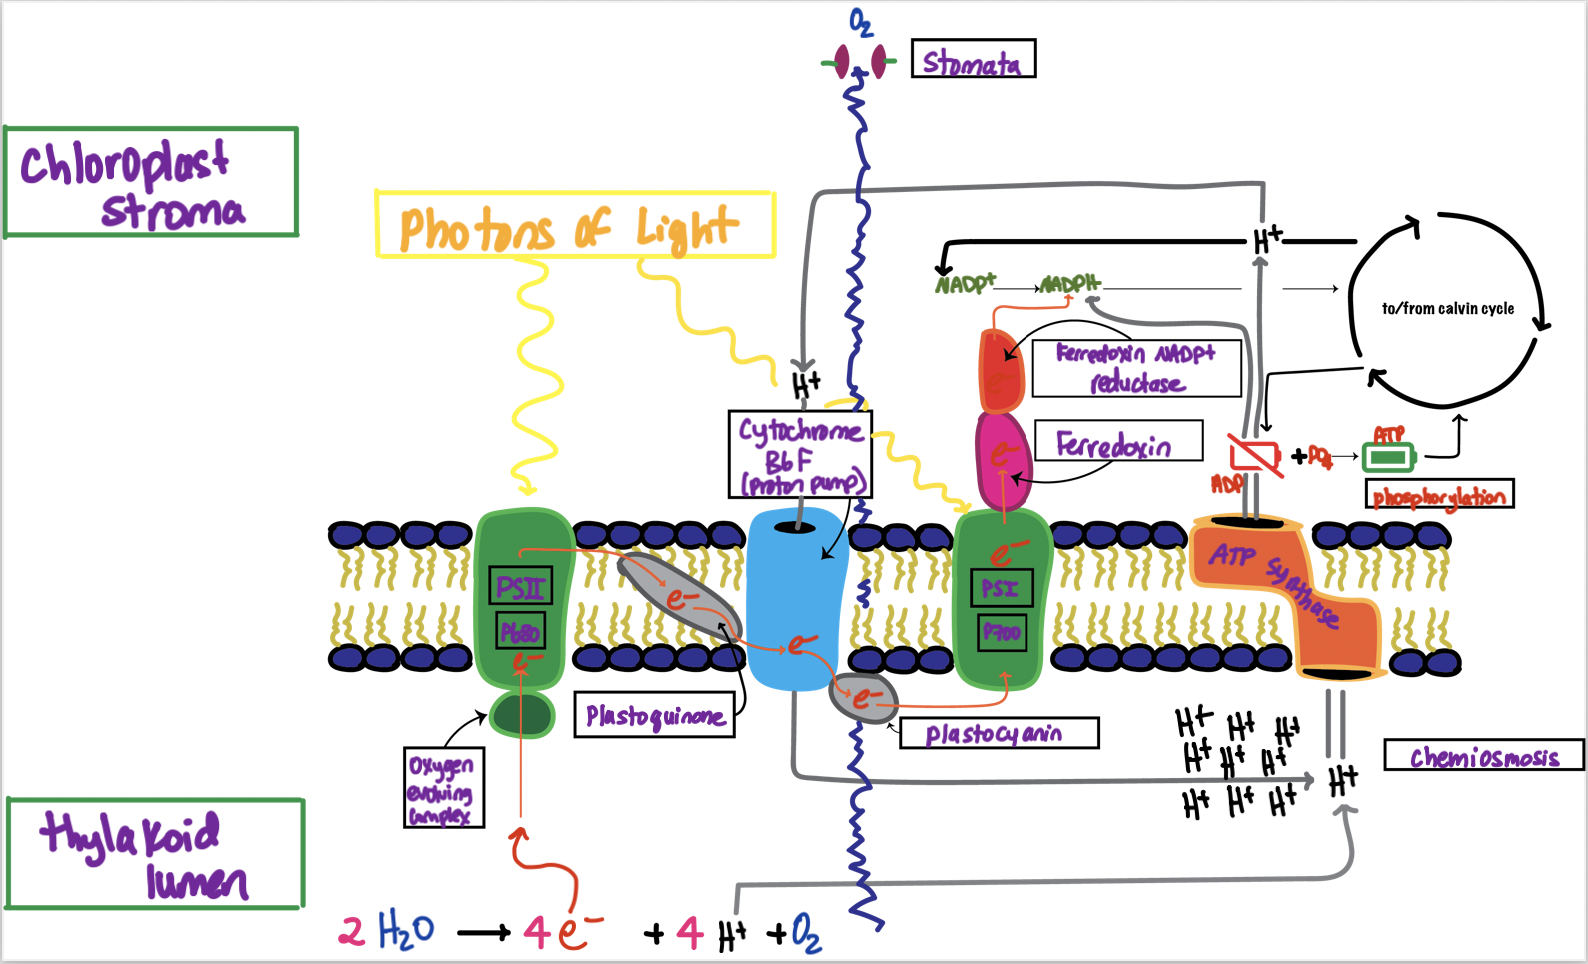 O₂
Stomata
Chloroplast
stroma
Photons of Light
H⁺
NADP⁺
NADPH
to/from calvin cycle
H⁺
Ferredoxin NADP+
reductase
e⁻
Cytochrome
B6F
(proton pump)
Ferredoxin
e⁻
ADP
+
PO₄
ATP
phosphorylation
PSII
P680
e⁻
e⁻
e⁻
e⁻
PSI
P700
ATP Synthase
e⁻
Plastoquinone
Plastocyanin
Oxygen
evolving
Complex
H⁺ H⁺ H⁺
H⁺ H⁺ H⁺
H⁺ H⁺ H⁺
H⁺
Chemiosmosis
Thylakoid
lumen
2 H₂O → 4 e⁻ + 4 H⁺ + O₂